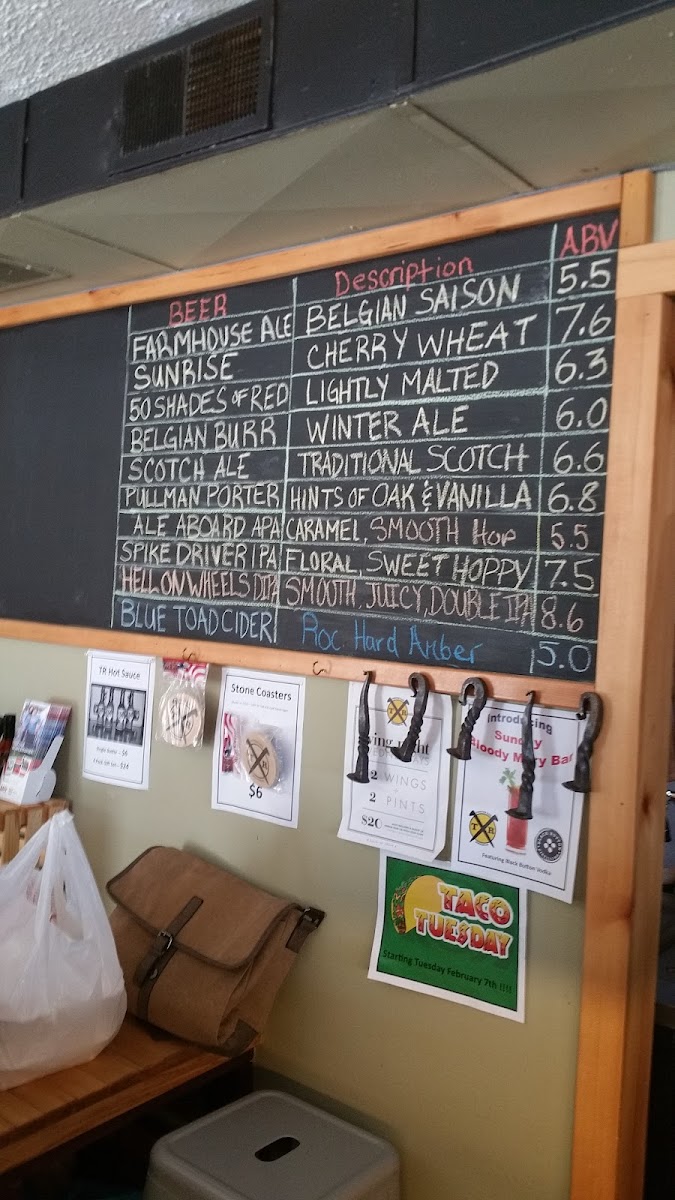 BEER Description ABV
FARMHOUSE ALE BELGIAN SAISON 5.5
SUNRISE CHERRY WHEAT 7.6
50 SHADES OF RED LIGHTLY MALTED 6.3
BELGIAN BURR WINTER ALE 6.0
SCOTCH ALE TRADITIONAL SCOTCH 6.6
PULLMAN PORTER HINTS OF OAK & VANILLA 6.8
ALE ABOARD APA CARAMEL, SMOOTH HOP 5.5
SPIKE DRIVER IPA FLORAL, SWEET HOPPY 7.5
HELL ON WHEELS DIPA SMOOTH, JUICY, DOUBLE IPA 8.6
BLUE TOAD CIDER Roc Hard Amber 5.0
TR Hot Sauce
Single Bottle - $6
Stone Coasters
$6
WINGS
2 PINTS
$20
T R
Introducing
Sunday
Bloody Mary Bar
T R
Featuring Black Button Vodka
TACO
TUESDAY
Starting Tuesday February 7th !!!!